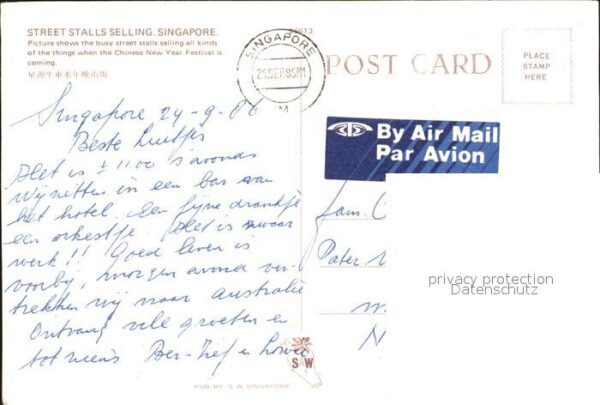 STREET STALLS SELLING. SINGAPORE.
Picture shows the busy street stalls selling all kinds
of the things when the Chinese New Year Festival is
coming.
星洲牛車水年晚市場
SINGAPORE
PM
POST CARD
PLACE
STAMP
HERE
By Air Mail
Par Avion
Singapore 24-9-86
Beste
Het is ± 11.00 's avonds
Wij zitten in een bar van
het hotel. Een fijne drankje
een orkestje. Het is zwaar
werk!! Goed leven is
voorbij, morgen avond ver-
trekken wij naar Australie
Ontvang vele groeten en
tot ziens Ben-
Fam.
Pater
privacy protection
Datenschutz
S W
PUB. BY: S.W. SINGAPORE